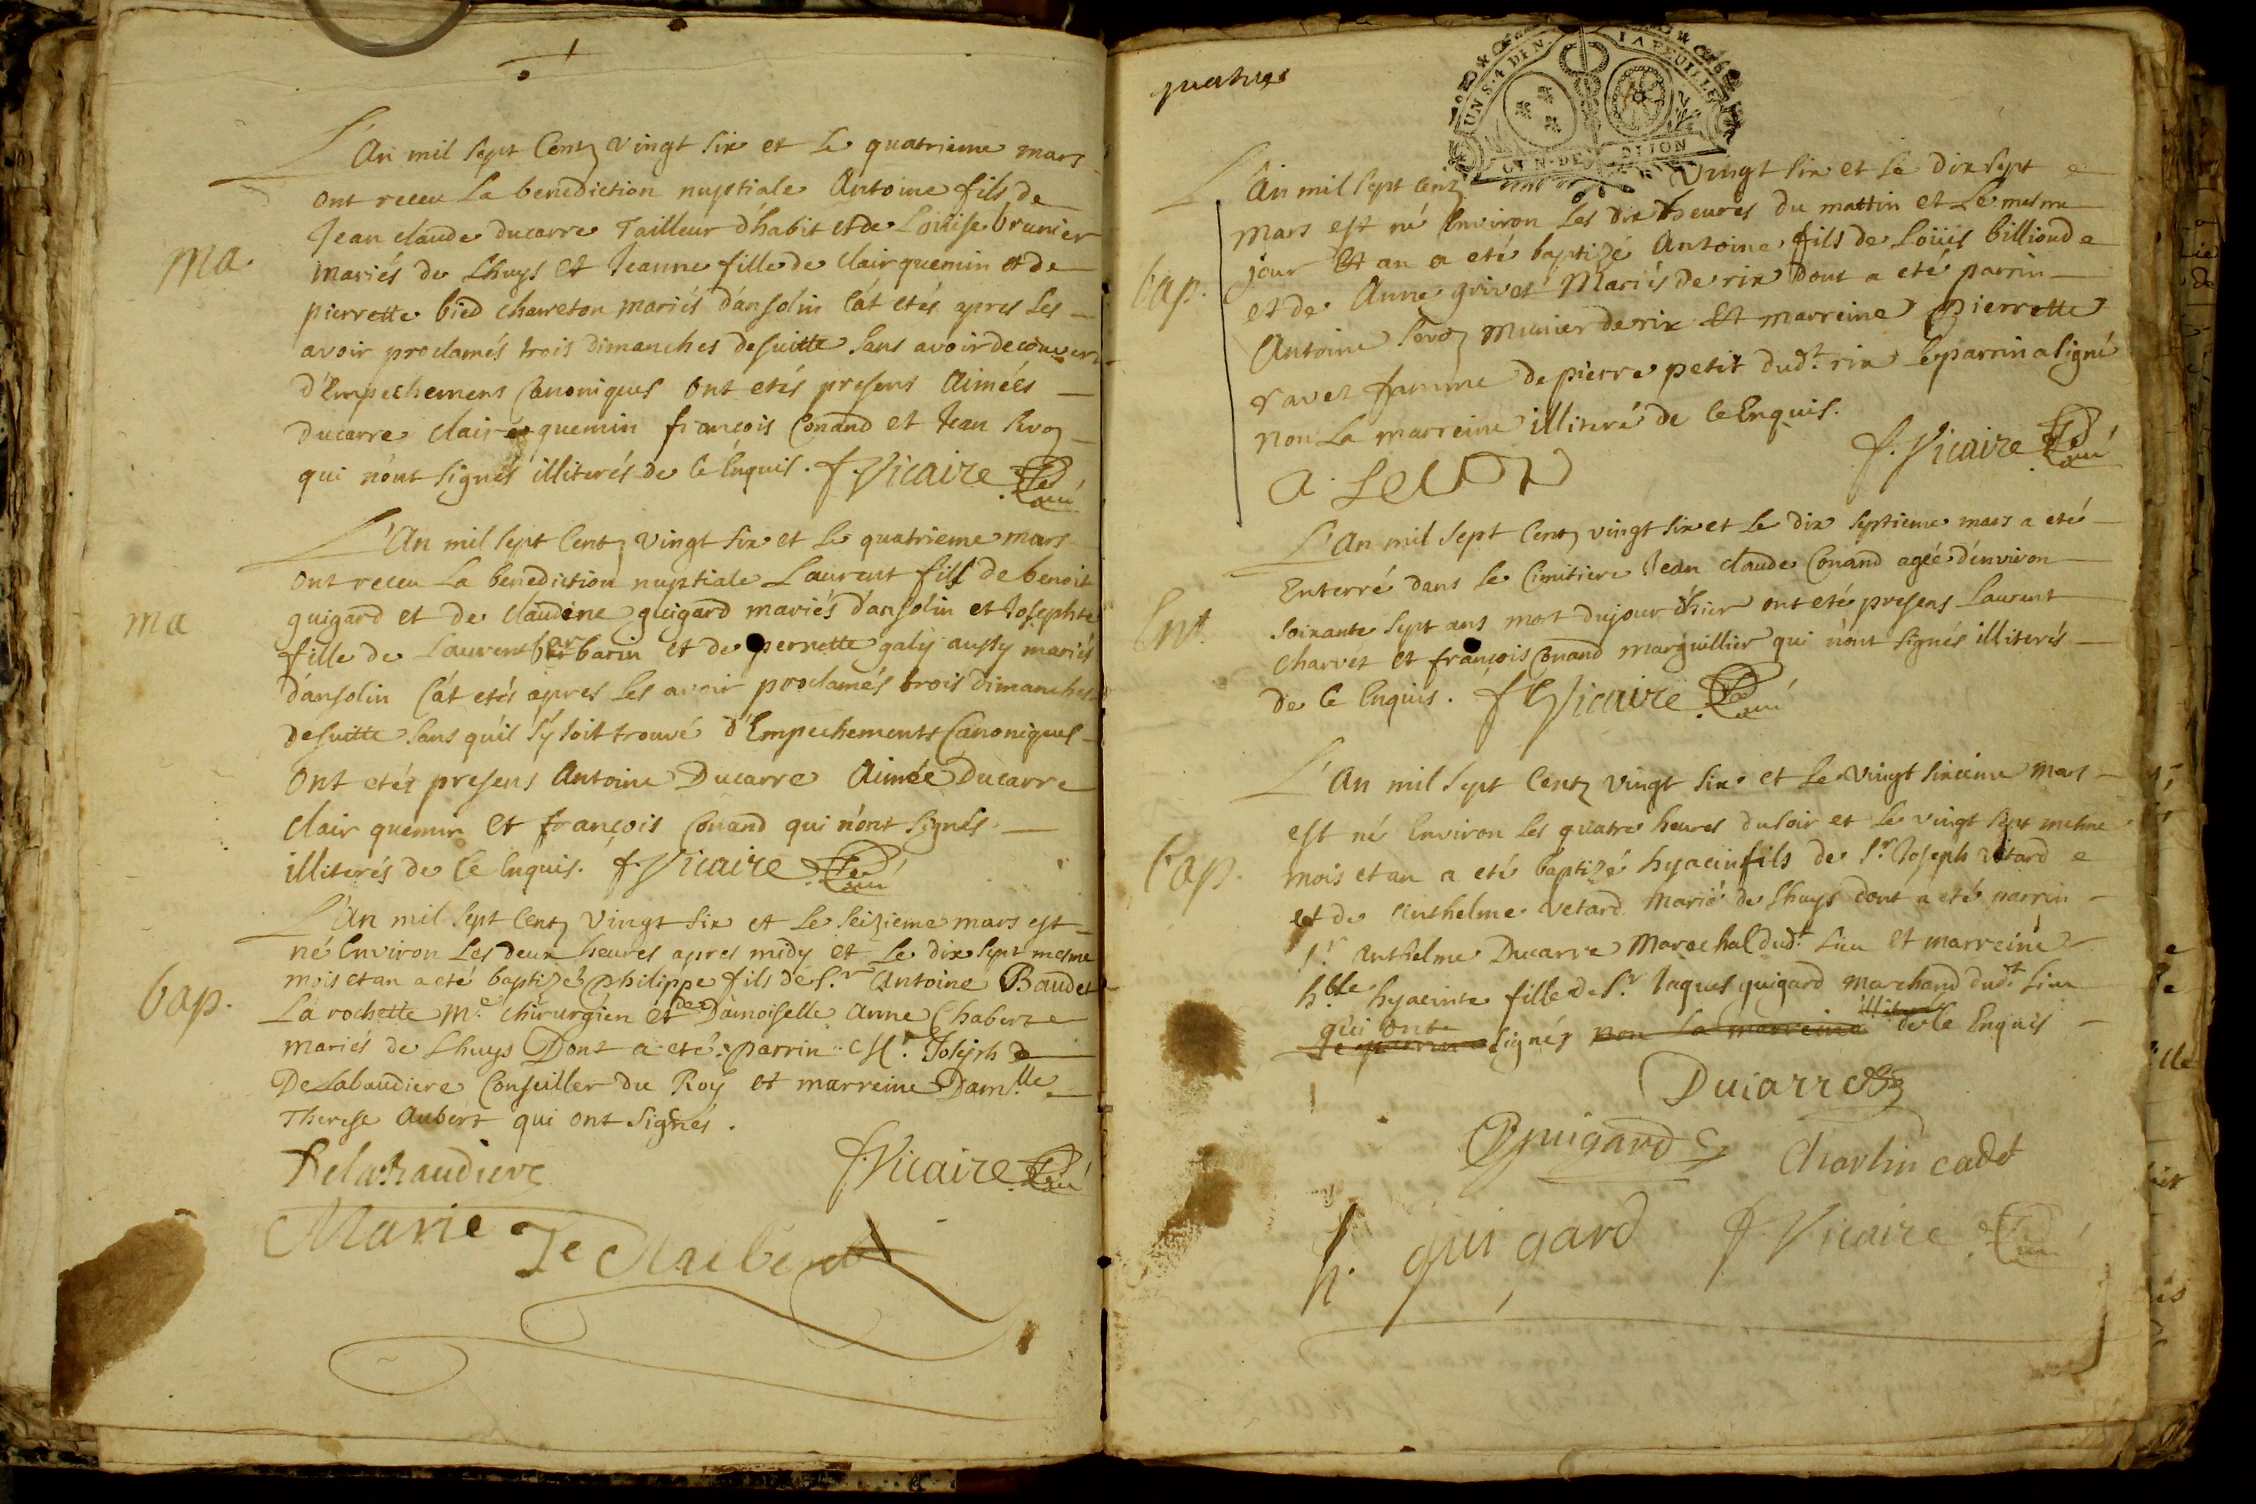 L'An mil sept Centz vingt six et Le quatrieme mars
ont receu La benediction nuptiale Antoine fils de
Jean claude ducarre Tailleur d'habit et de Loüise brunier
mariés de Lhuys et Jeanne fille de clair quemin et de
pierrette bied charreton mariés d'ansolin Cât etés apres Les
avoir proclamés trois dimanches de suitte sans avoir decouvert
d'Empechemens Canoniques ont etés presens Aimées
ducarre clair quemin françois Conand et Jean
qui n'ont signés illiterés de Ce Enquis. f. Vicaire Curé
ma
L'An mil sept Centz vingt six et Le quatrieme mars
ont receu La benediction nuptiale Laurent fils de benoit
guigard et de claudine guigard mariés d'ansolin et Josephte
fille de Laurent barbarin et de pernette galy aussy mariés
d'ansolin Cât etés apres Les avoir proclamés trois dimanches
de suitte sans qu'il s'y soit trouvé d'Empechements Canoniques
ont etés presens Antoine Ducarre Aimée Ducarre
clair quemin et françois Conand qui n'ont signés
illiterés de Ce Enquis. f. Vicaire Curé
ma
L'An mil sept Centz vingt six et Le seizieme mars est
né Environ Les deux heures apres midy et Le dix sept mesme
mois et an a eté baptizé philippe fils de S.r Antoine Baudet
La rochette M.e chirurgien et de Damoiselle Anne Chabert
mariés de Lhuys Dont a eté parrin M.r Joseph de
De Labaudiere Conseiller du Roy et marreine Dam.lle
Therese Aubert qui ont signés.
bap.
Delabaudiere
f. Vicaire Curé
Marie Te Aubert
quatres
UN S. 4 DEN. LA FEUILLE
GEN. DE DIJON
L'An mil sept Centz vingt six et Le dix sept
mars est né Environ Les dix heures du mattin et Le mesme
jour et an a eté baptizé Antoine fils de Loüis billioud
et de Anne grivet Mariés de rix Dont a eté parrin
Antoine munier de rix et marreine pierrette
ravet famme de pierre petit dud.t rix Le parrin a signé
non La marreine illiteré de Ce Enquis.
bap.
f. Vicaire Curé
L'An mil sept Centz vingt six et Le dix septieme mars a eté
Enterré dans Le Cimitiere Jean claude Conand agée d'environ
soixante sept ans mot du jour d'hier ont eté presens Laurent
charvet et françois Conand marguillier qui n'ont signés illiterés
de Ce Enquis. f. Vicaire Curé
Ent.
L'An mil sept Centz vingt six et Le vingt sixieme mars
est né Environ Les quatre heures du soir et Le vingt sept mesme
mois et an a eté baptizé hyacin fils de S.r Joseph vetard
et de Anthelme vetard marié de Lhuys dont a eté parrin
S.r Anthelme Ducarre Marechal dud.t Lieu et marreine
h.ble hyacinte fille de S.r Jaques guigard marchand dud.t Lieu
qui ont signés non La marreine illiteré de Ce Enquis
bap.
Ducarre
Guigard
Charlin cadet
h. guigard
f. Vicaire Curé